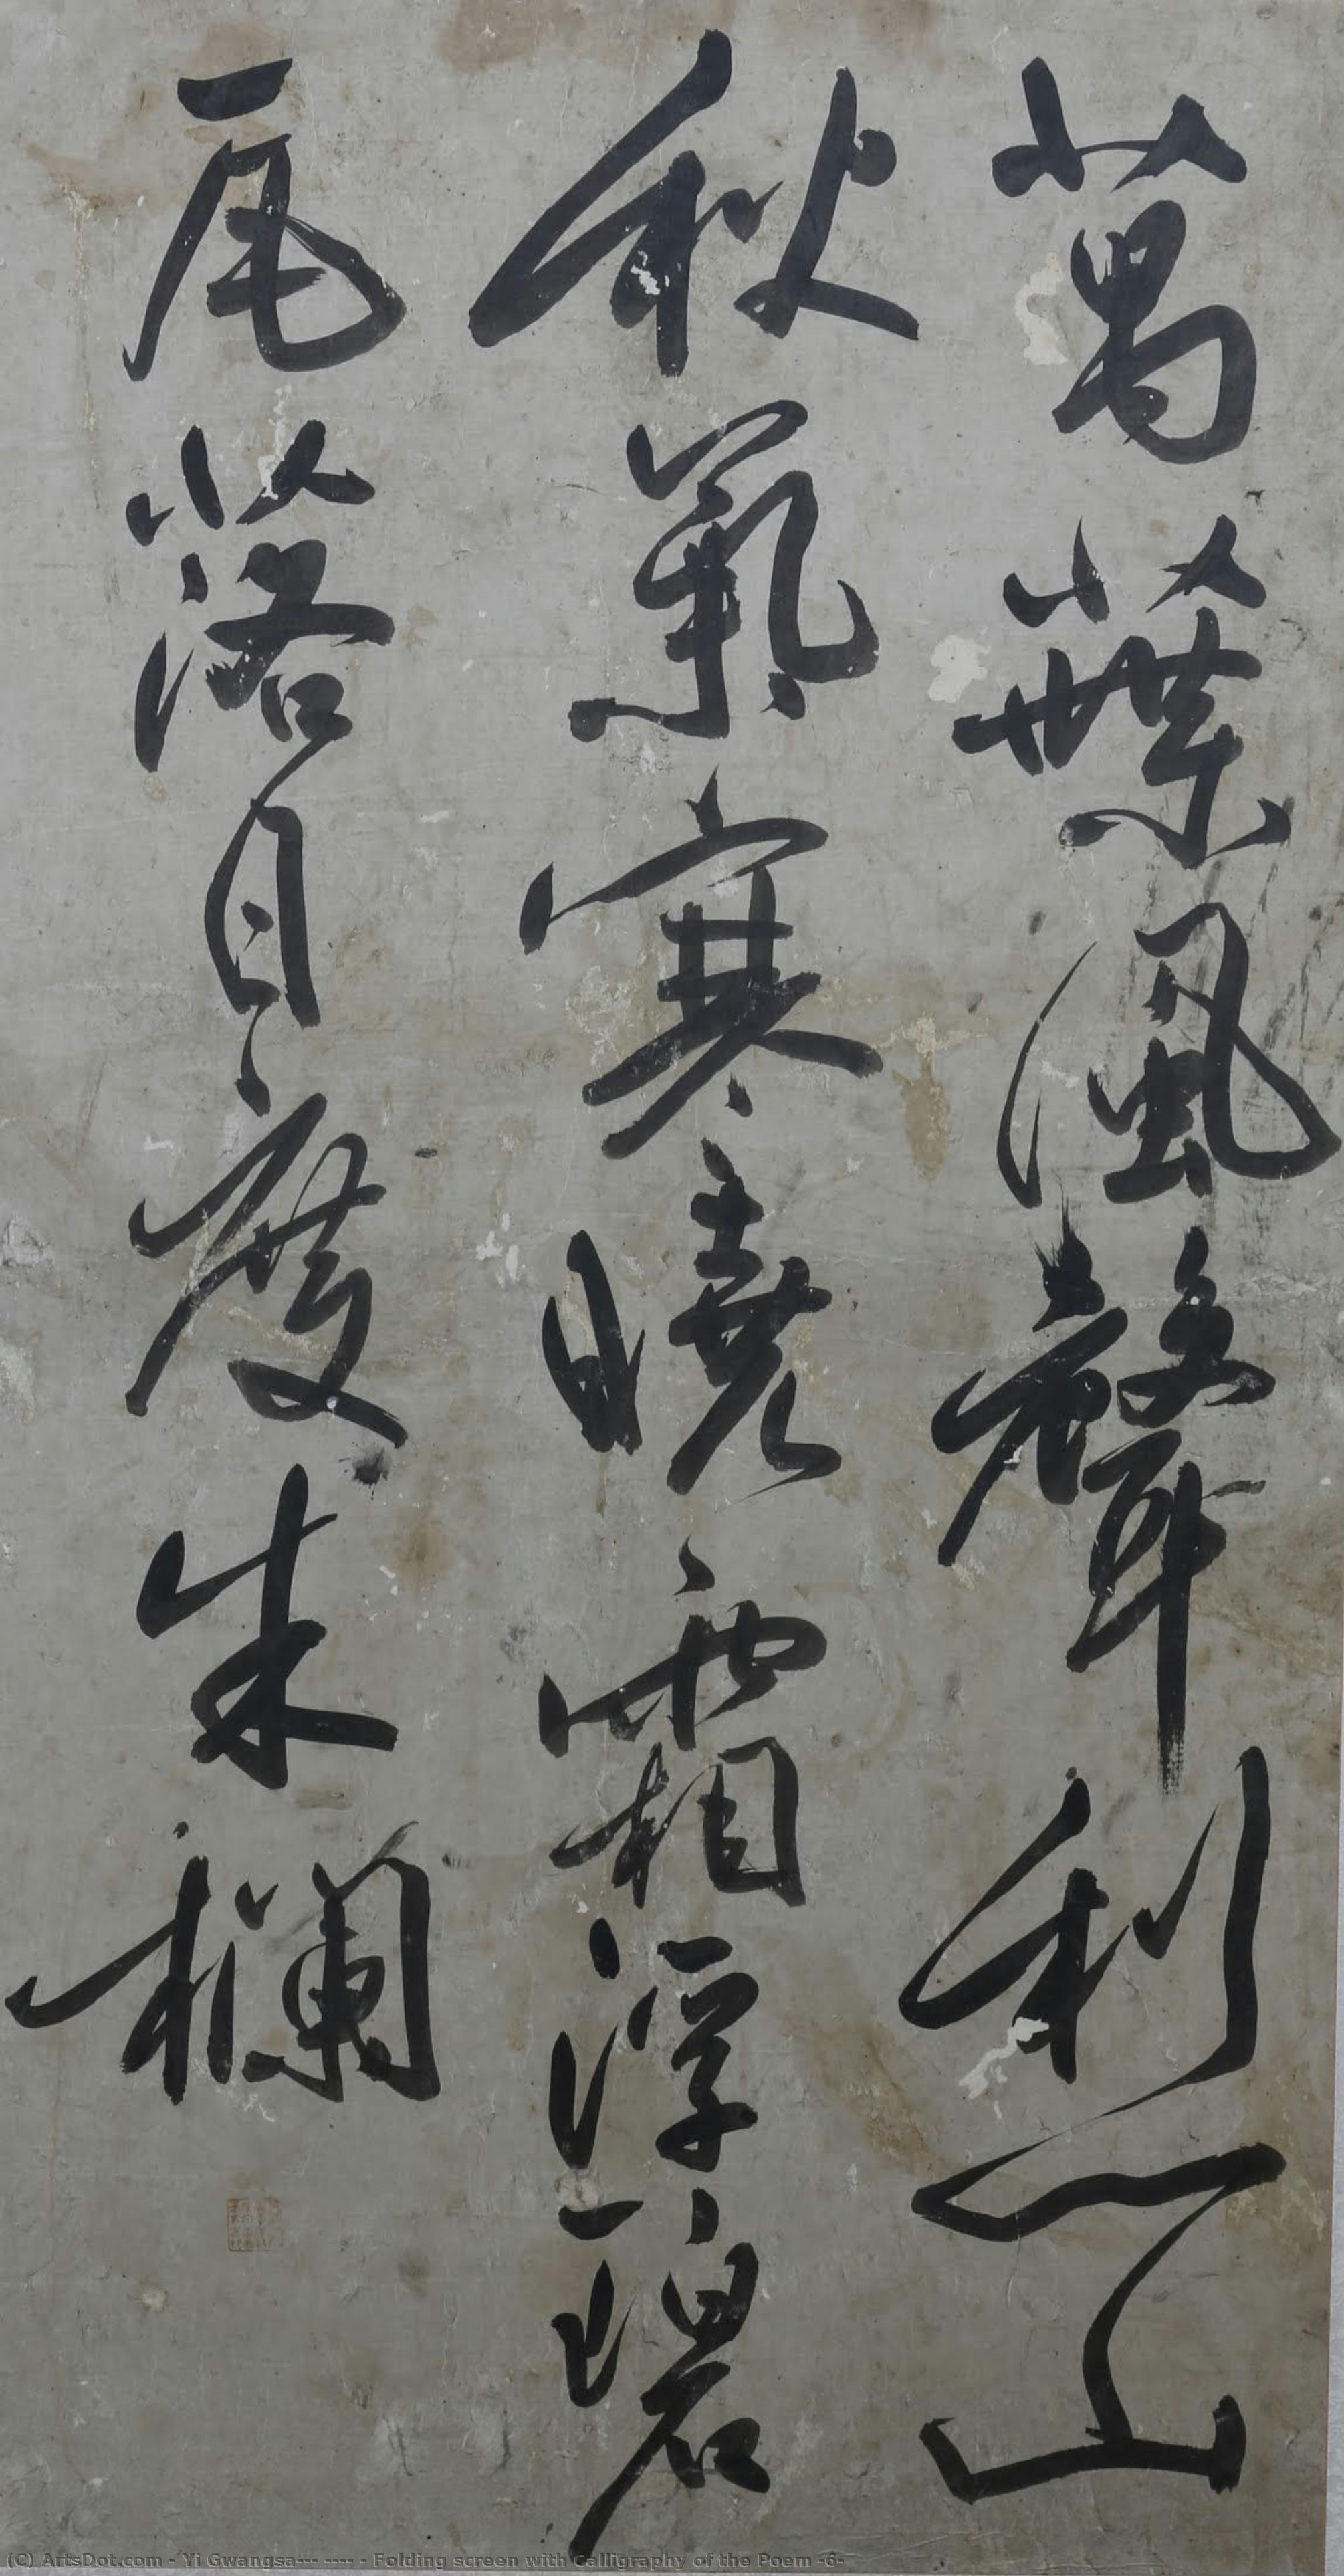 萬葉風聲利一山
秋氣寒曉霜浮碧
瓦落日度朱欄
(C) ArtsDot.com - Yi Gwangsa--- ---- - Folding screen with Calligraphy of the Poem -6-